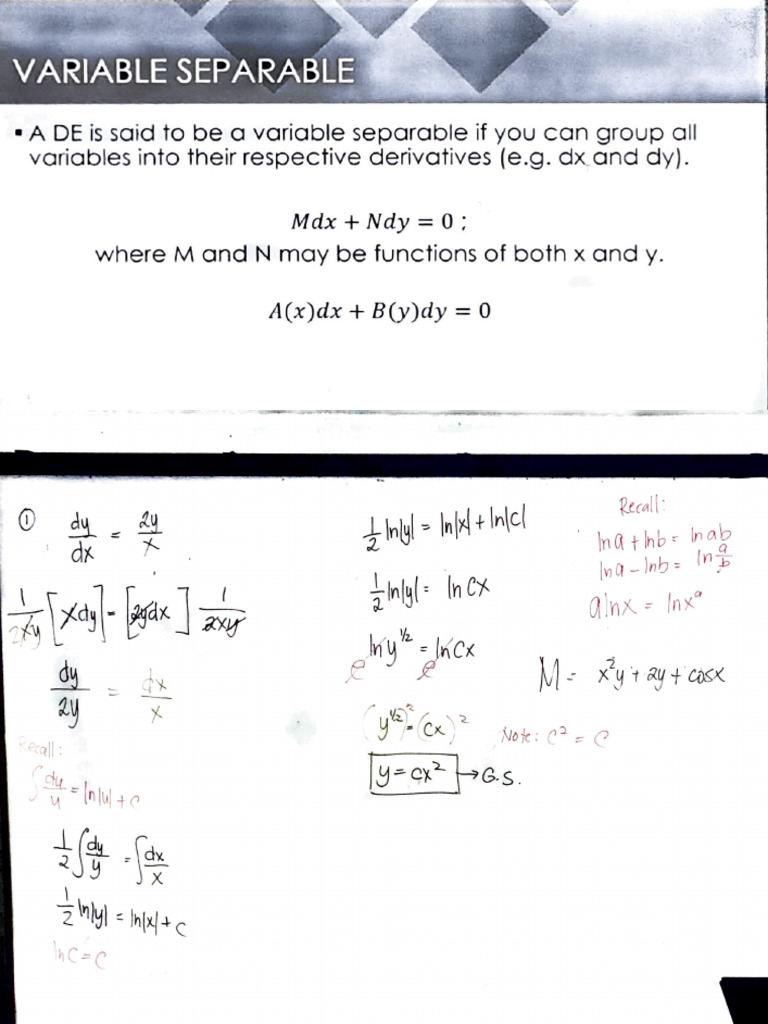 VARIABLE SEPARABLE
▪ A DE is said to be a variable separable if you can group all
variables into their respective derivatives (e.g. dx and dy).
Mdx + Ndy = 0 ;
where M and N may be functions of both x and y.
A(x)dx + B(y)dy = 0
① dy/dx = 2y/x
1/2xy [xdy] = [2ydx] 1/2xy
dy/2y = dx/x
Recall:
∫ du/u = ln|u| + c
1/2 ∫ dy/y = ∫ dx/x
1/2 ln|y| = ln|x| + c
ln c = c
1/2 ln|y| = ln|x| + ln|c|
1/2 ln|y| = ln cx
e^(ln y^(1/2)) = e^(ln cx)
(y^(1/2))² = (cx)²
y = cx² → G.S.
Note: c² = c
Recall:
ln a + ln b = ln ab
ln a − ln b = ln a/b
a ln x = ln x^a
M = x²y + 2y + cosx